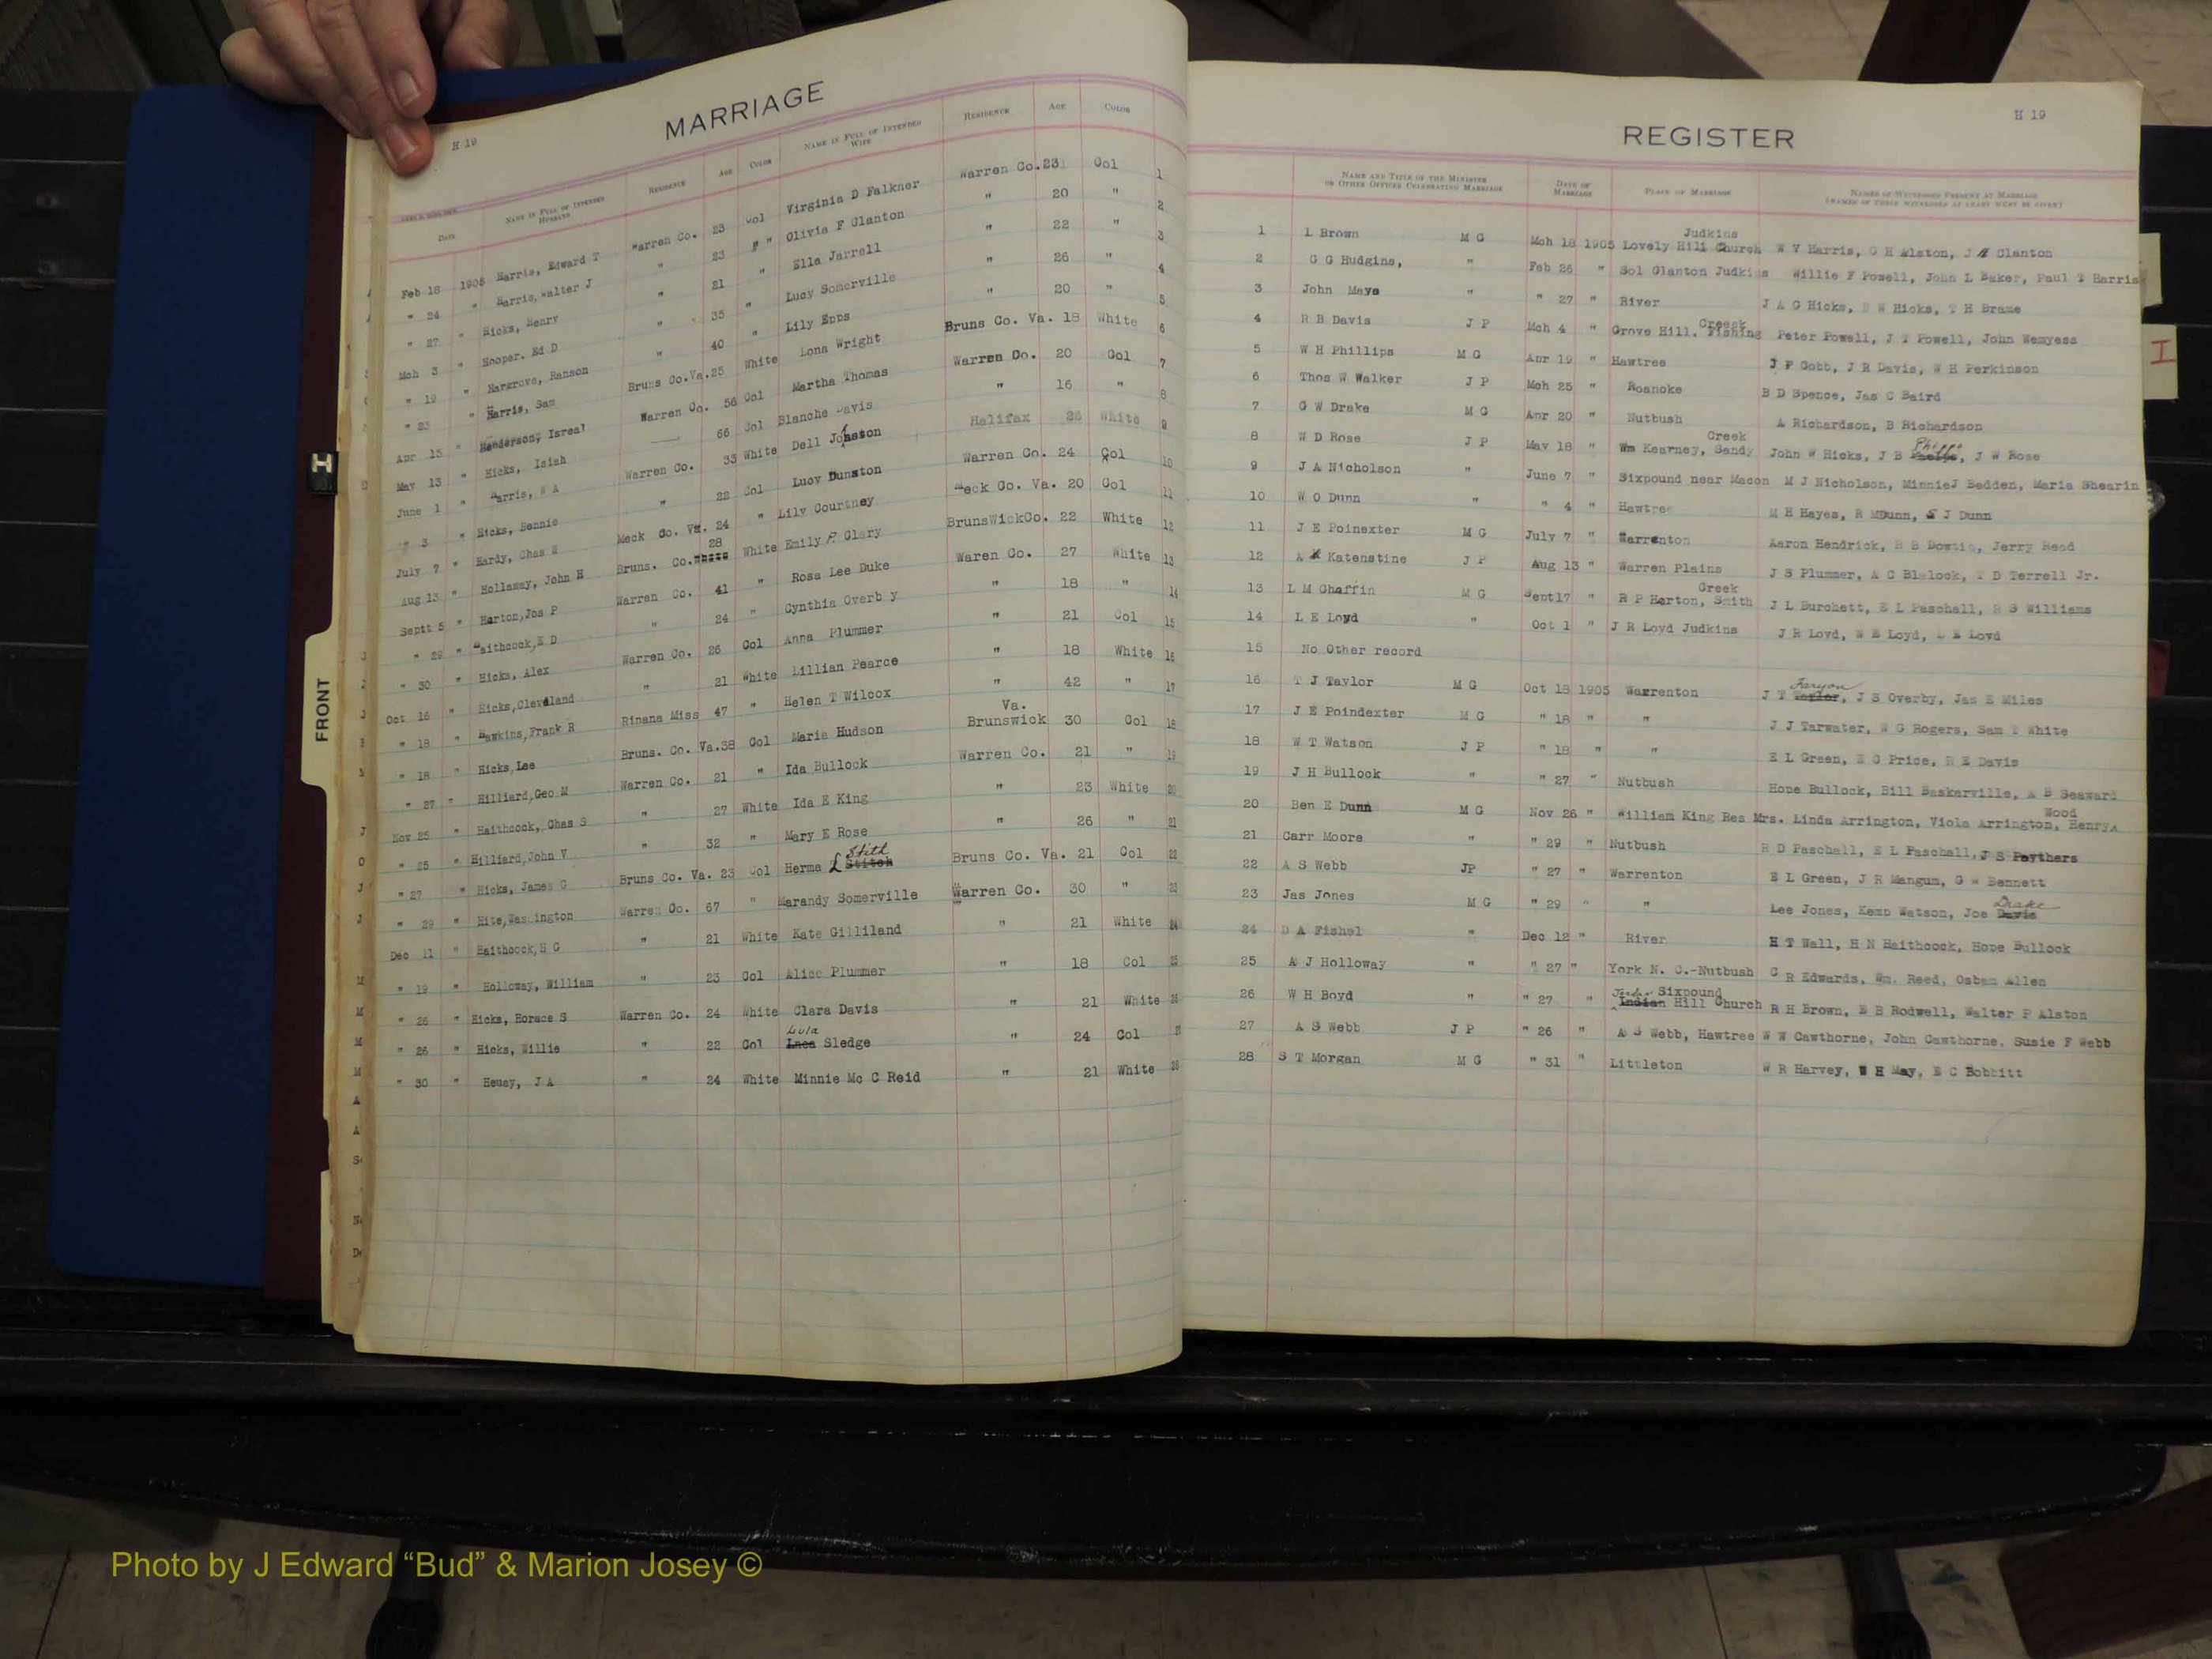 H 19
MARRIAGE
DATE NAME IN FULL OF INTENDED HUSBAND RESIDENCE AGE COLOR NAME IN FULL OF INTENDED WIFE RESIDENCE AGE COLOR
Feb 18 1905 Harris, Edward T Warren Co. 23 Col Virginia D Falkner Warren Co. 23 Col 1
" 24 " Harris, Walter J " 23 " " Olivia F Clanton " 20 " 2
" 27 " Hicks, Henry " 21 " Ella Jarrell " 22 " 3
Mch 3 " Hooper. Ed D " 35 " Lucy Somerville " 26 " 4
" 19 " Hargrove, Ranson " 40 " Lily Epps " 20 " 5
" 25 " Harris, Sam Bruns Co.Va.25 White Lona Wright Bruns Co. Va. 18 White 6
Apr 15 " Henderson, Isreal Warren Co. 56 Col Martha Thomas Warren Co. 20 Col 7
May 13 " Hicks, Isiah 66 Col Blanche Davis " 16 " 8
June 1 " Harris, W A Warren Co. 33 White Dell Johston Halifax 26 White 9
" 3 " Hicks, Bennie " 22 Col Lucy Dunston Warren Co. 24 Col 10
July 7 " Hardy, Chas W Meck Co. Va. 24 " Lily Courtney Meck Co. Va. 20 Col 11
Aug 13 " Hollaway, John H Bruns. Co. 28 White Emily P Clary BrunsWickCo. 22 White 12
Septt 5 " Horton,Jos P Warren Co. 41 " Rosa Lee Duke Waren Co. 27 White 13
" 29 " Haithcock,E D " 24 " Cynthia Overb y " 18 " 14
" 30 " Hicks, Alex Warren Co. 26 Col Anna Plummer " 21 Col 15
Oct 16 " Hicks,Cleveland " 21 White Lillian Pearce " 18 White 16
" 18 " Hawkins,Frank R Rinana Miss 47 " Helen T Wilcox " 42 " 17
" 18 " Hicks,Lee Bruns. Co. Va.38 Col Maria Hudson Va. Brunswick 30 Col 18
" 27 " Hilliard,Geo M Warren Co. 21 " Ida Bullock Warren Co. 21 " 19
Nov 25 " Haithcock, Chas S " 27 White Ida E King " 23 White 20
" 25 " Hilliard,John V " 32 " Mary E Rose " 26 " 21
" 27 " Hicks, James C Bruns Co. Va. 23 Col Herma L Stitch Stith Bruns Co. Va. 21 Col 22
" 29 " Hite,Washington Warren Co. 67 " Marandy Somerville Warren Co. 30 " 23
Dec 11 " Haithcock,H G " 21 White Kate Gilliland " 21 White 24
" 19 " Holloway, William " 23 Col Alice Plummer " 18 Col 25
" 26 " Hicks, Horace S Warren Co. 24 White Clara Davis " 21 White 26
" 26 " Hicks, Willie " 22 Col Lula Sledge " 24 Col 27
" 30 " Heuay, J A " 24 White Minnie Mc C Reid " 21 White 28
H 19
REGISTER
NAME AND TITLE OF THE MINISTER OR OTHER OFFICER CELEBRATING MARRIAGE DATE OF MARRIAGE PLACE OF MARRIAGE NAMES OF WITNESSES PRESENT AT MARRIAGE
(NAMES OF THREE WITNESSES AT LEAST MUST BE GIVEN)
Judkins
1 L Brown M G Mch 18 1905 Lovely Hill Church W V Harris, O H Alston, J H Clanton
2 G G Hudgins, " Feb 26 " Sol Clanton Judkins Willie F Powell, John L Baker, Paul T Harris
3 John Mays " " 27 " River J A G Hicks, E W Hicks, T H Brame
4 R B Davis J P Mch 4 " Grove Hill. Fishing Creeek Peter Powell, J T Powell, John Wemyess
5 W H Phillips M G Apr 19 " Hawtree J F Cobb, J R Davis, W H Perkinson
6 Thos W Walker J P Mch 25 " Roanoke B D Spence, Jas C Baird
7 G W Drake M G Apr 20 " Nutbush A Richardson, B Richardson
8 W D Rose J P May 18 " Wm Kearney, Sandy Creek John W Hicks, J B Phipps, J W Rose
9 J A Nicholson " June 7 " Sixpound near Macon M J Nicholson, MinnieJ Bedden, Maria Shearin
10 W O Dunn " " 4 " Hawtree M H Hayes, R MDunn, S J Dunn
11 J E Poinexter M G July 7 " Warrenton Aaron Hendrick, B B Dowtin, Jerry Read
12 A Katenstine J P Aug 13 " Warren Plains J S Plummer, A C Blalock, T D Terrell Jr.
13 L M Chaffin M G Sept17 " R P Horton, Smith Creek J L Burchett, E L Paschall, R S Williams
14 L E Loyd " Oct 1 " J R Loyd Judkins J R Loyd, W E Loyd, L E Loyd
15 No Other record
16 T J Taylor M G Oct 18 1905 Warrenton J T Taylor, J S Overby, Jas E Miles
17 J E Poindexter M G " 18 " " J J Tarwater, W G Rogers, Sam T White
18 W T Watson J P " 18 " " E L Green, E C Price, R E Davis
19 J H Bullock " " 27 " Nutbush Hope Bullock, Bill Baskerville, A B Seaward
20 Ben E Dunn M G Nov 26 " William King Res Mrs. Linda Arrington, Viola Arrington, Henry Wood
21 Carr Moore " " 29 " Nutbush R D Paschall, E L Paschall, J S Poythers
22 A S Webb JP " 27 " Warrenton E L Green, J R Mangum, G W Bennett
23 Jas Jones M G " 29 " " Lee Jones, Kemp Watson, Joe Davis Drake
24 D A Fishel " Dec 12 " River H T Wall, H N Haithcock, Hope Bullock
25 A J Holloway " " 27 " York N. C.-Nutbush C R Edwards, Wm. Reed, Osbam Allen
26 W H Boyd " " 27 " Indian Hill Church Sixpound R H Brown, E B Rodwell, Walter P Alston
27 A S Webb J P " 26 " A S Webb, Hawtree W W Cawthorne, John Cawthorne, Susie F Webb
28 S T Morgan M G " 31 " Littleton W R Harvey, W H May, E C Bobbitt
H
FRONT
I
Photo by J Edward “Bud” & Marion Josey ©